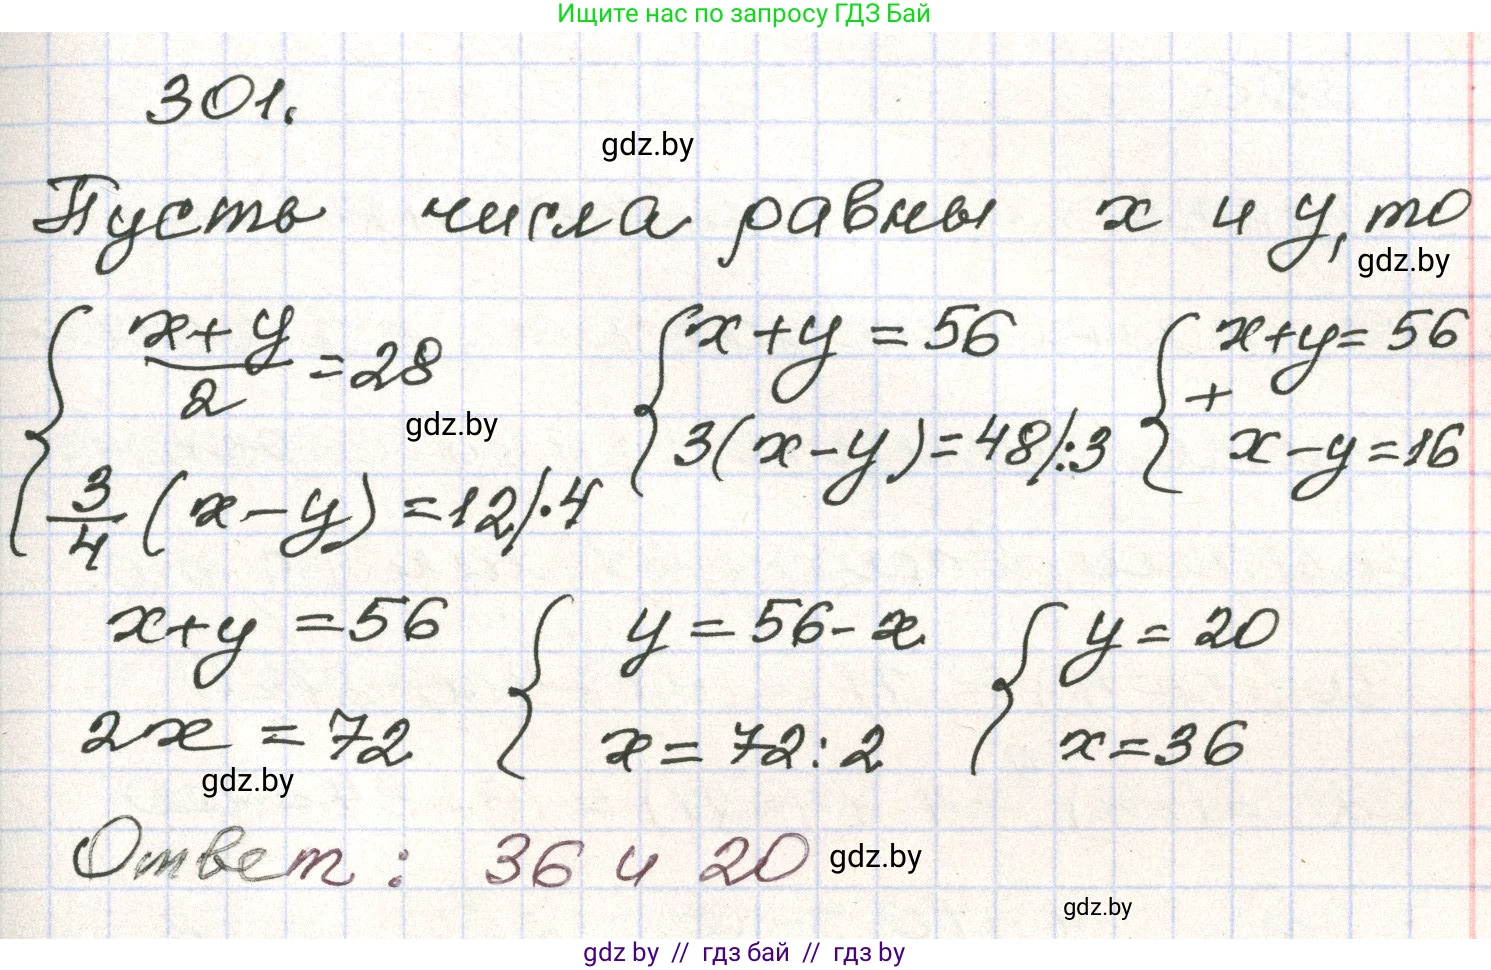 Ищите нас по запросу ГДЗ Бай
301.
gdz.by
Пусть числа равны x и y, то
gdz.by
{ (x+y)/2 = 28 { x+y = 56 { x+y = 56
gdz.by
+
{ 3/4 (x-y) = 12 /·4 { 3(x-y) = 48 /:3 { x-y = 16
x+y = 56 { y = 56-x { y = 20
2x = 72 { x = 72:2 { x = 36
gdz.by
Ответ: 36 и 20
gdz.by
gdz.by
gdz by // гдз бай // гдз by